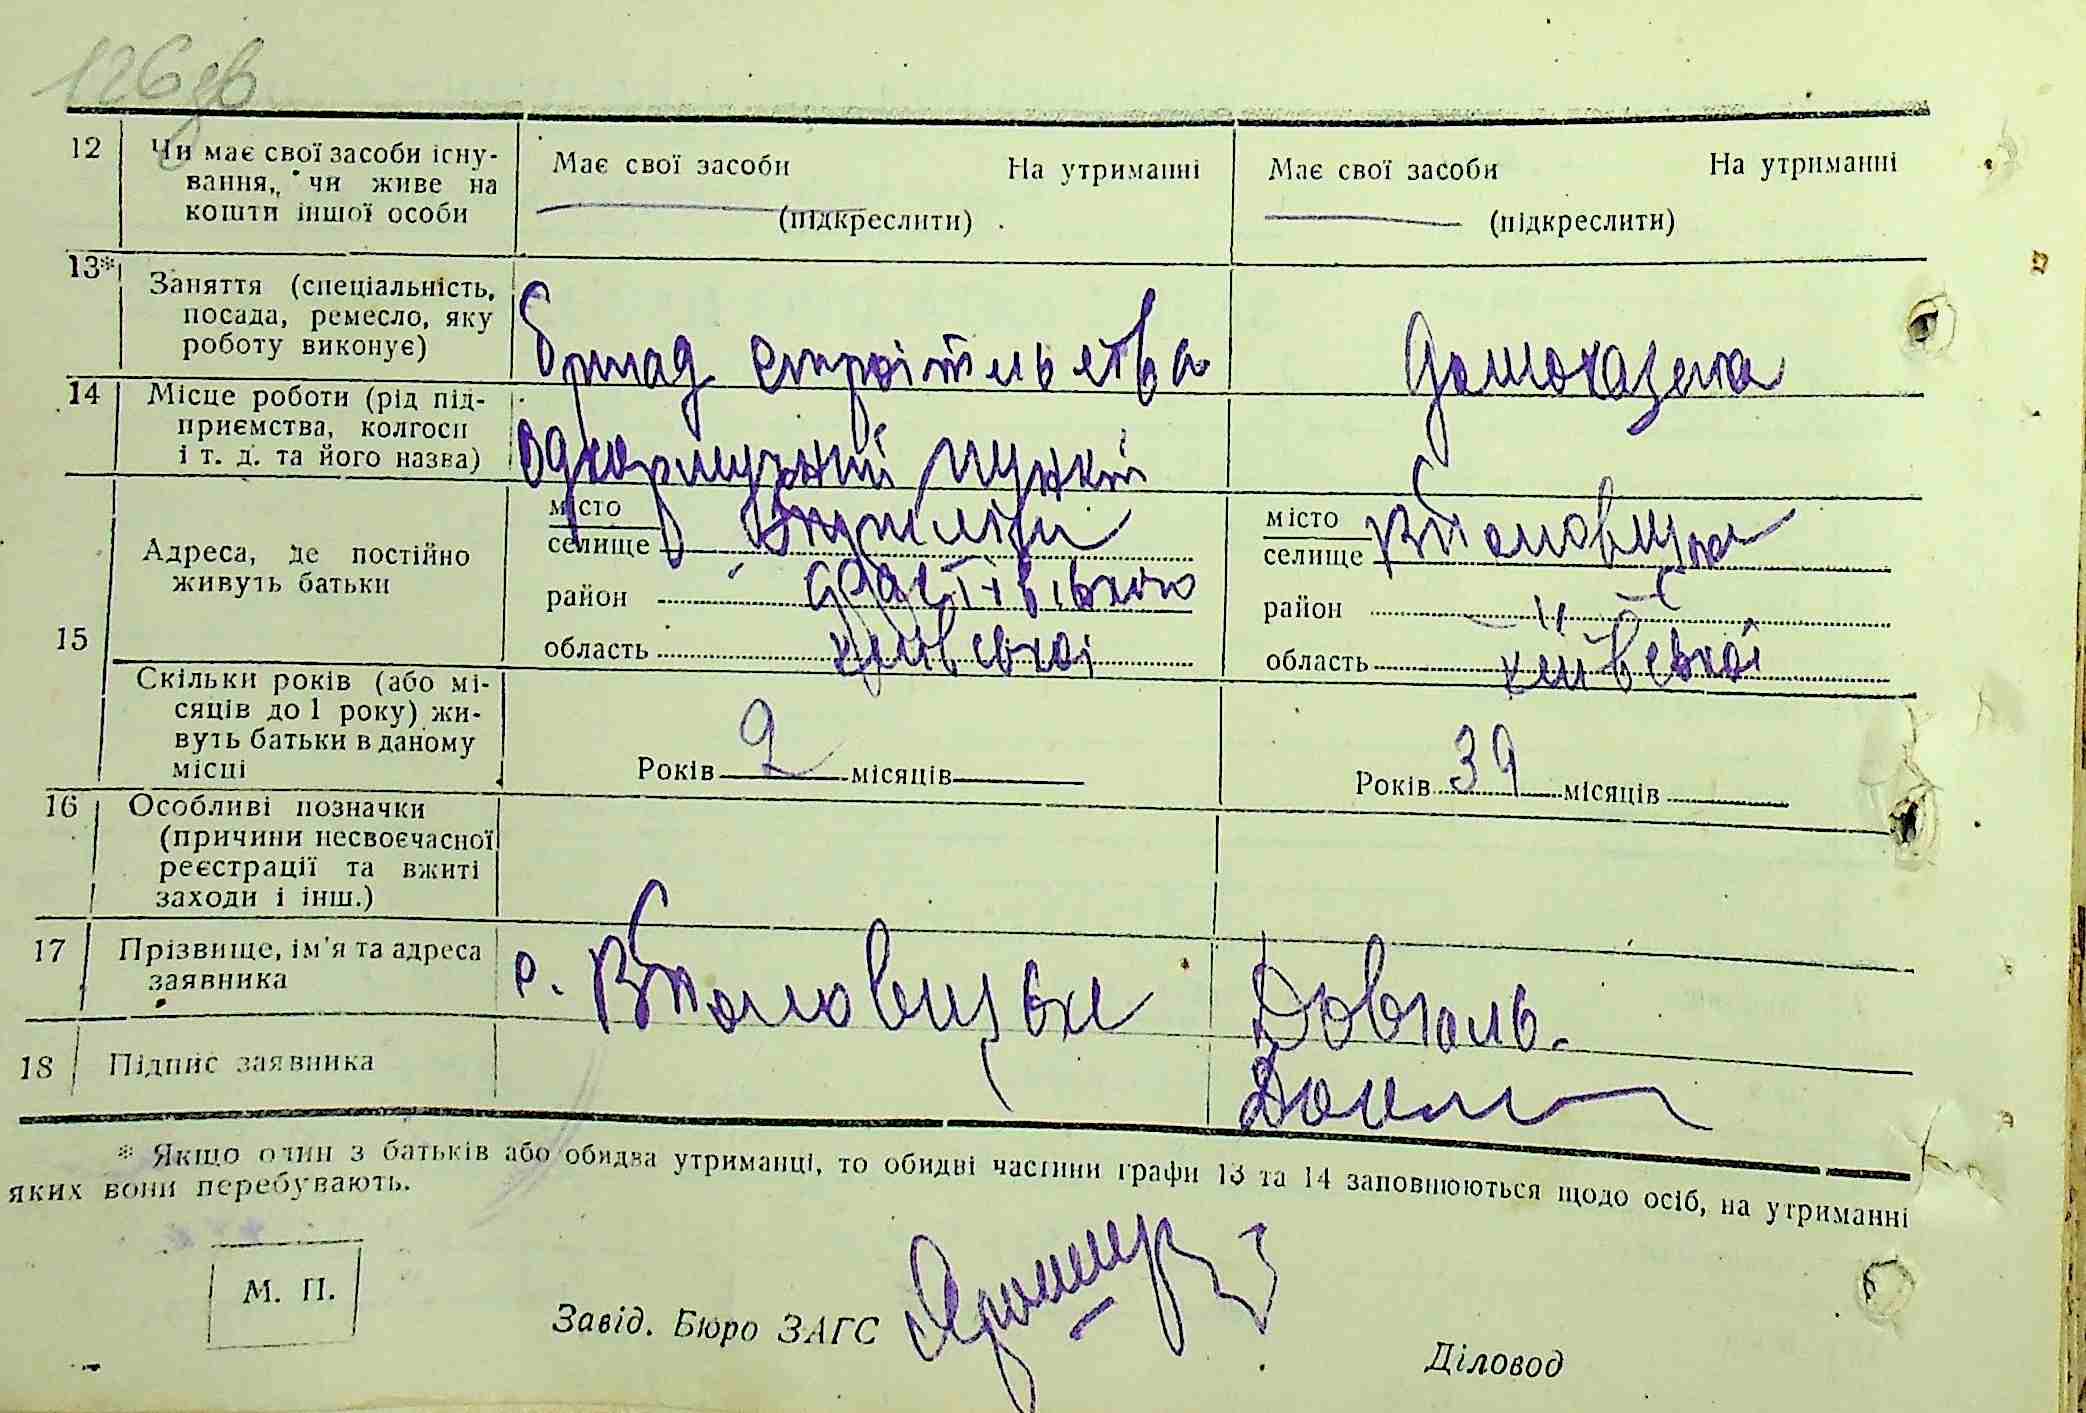 126 зв
12 Чи має свої засоби існу-
вання, чи живе на
кошти іншої особи
Має свої засоби На утриманні
(підкреслити)
Має свої засоби На утриманні
(підкреслити)
13* Заняття (спеціальність,
посада, ремесло, яку
роботу виконує)
бригад строітельства
домохазяка
14 Місце роботи (рід під-
приємства, колгосп
і т. д. та його назва)
одкормучний пункт
15 Адреса, де постійно
живуть батьки
місто
селище
район Фастівського
область київської
місто
селище
район — " —
область київської
Скільки років (або мі-
сяців до 1 року) жи-
вуть батьки в даному
місці
Років 2 місяців
Років 39 місяців
16 Особливі позначки
(причини несвоєчасної
реєстрації та вжиті
заходи і інш.)
17 Прізвище, ім'я та адреса
заявника
с. Довгаль.
18 Підпис заявника
* Якщо один з батьків або обидва утриманці, то обидві частини графи 13 та 14 заповнюються щодо осіб, на утриманні
яких вони перебувають.
М. П.
Завід. Бюро ЗАГС
Діловод